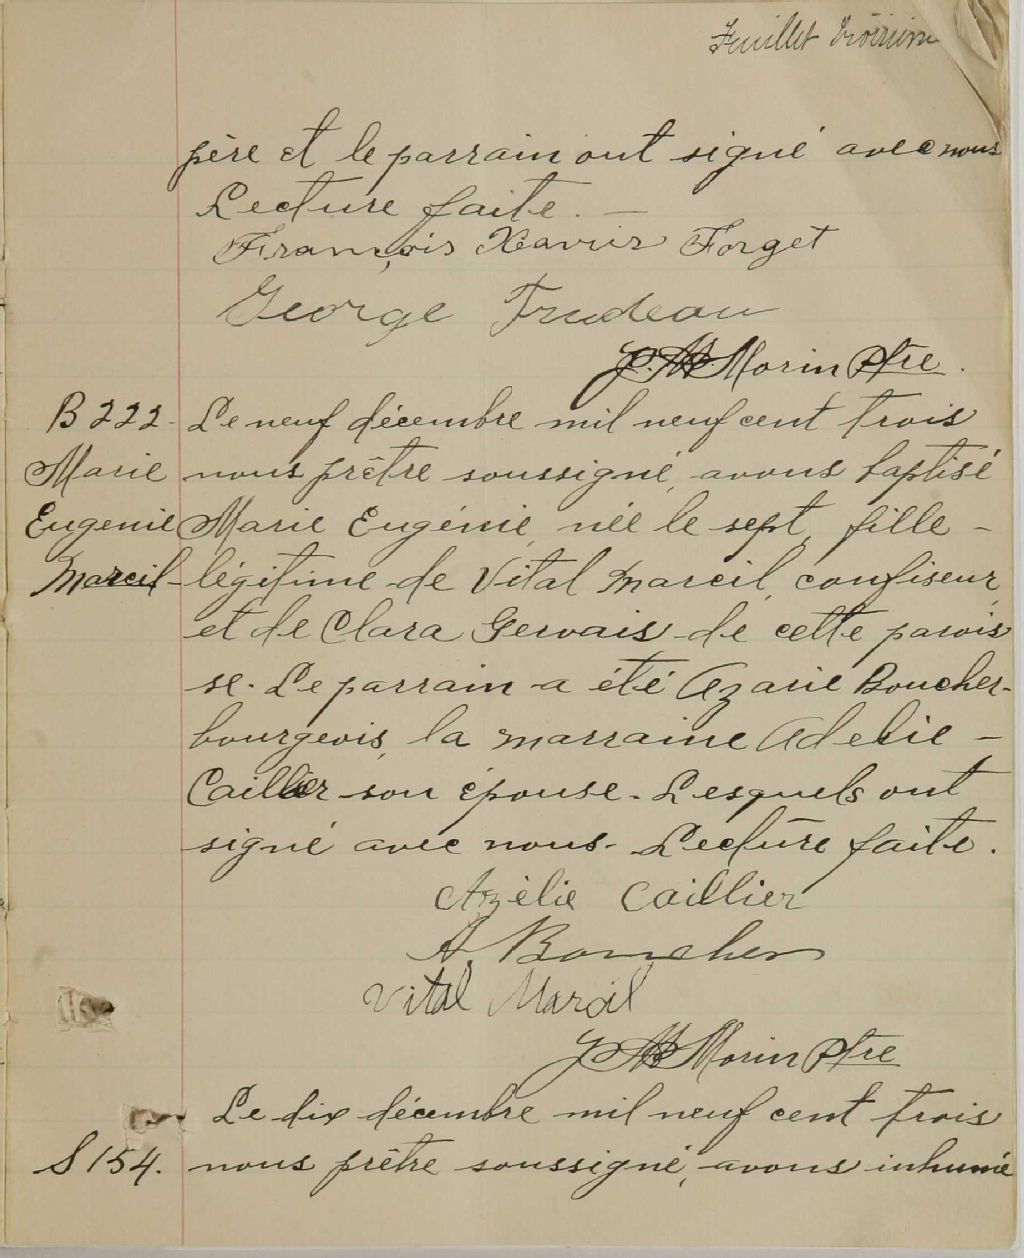 Feuillet troisième
père et le parrain ont signé avec nous
Lecture faite. —
François Xavier Forget
George Trudeau
J. M. Morin Ptre.
B 222. Le neuf décembre mil neuf cent trois
Marie nous prêtre soussigné, avons baptisé
Eugenie Marie Eugénie, née le sept, fille -
Marcil - légitime de Vital Marcil, confiseur,
et de Clara Gervais de cette parois
se. Le parrain a été Azarie Boucher -
bourgeois, la marraine Adelie -
Caillier son épouse. Lesquels ont
signé avec nous. Lecture faite.
Azélie Caillier
A. Boucher
Vital Marcil
Morin Ptre
Le dix décembre mil neuf cent trois
S 154. nous prêtre soussigné, avons inhumé